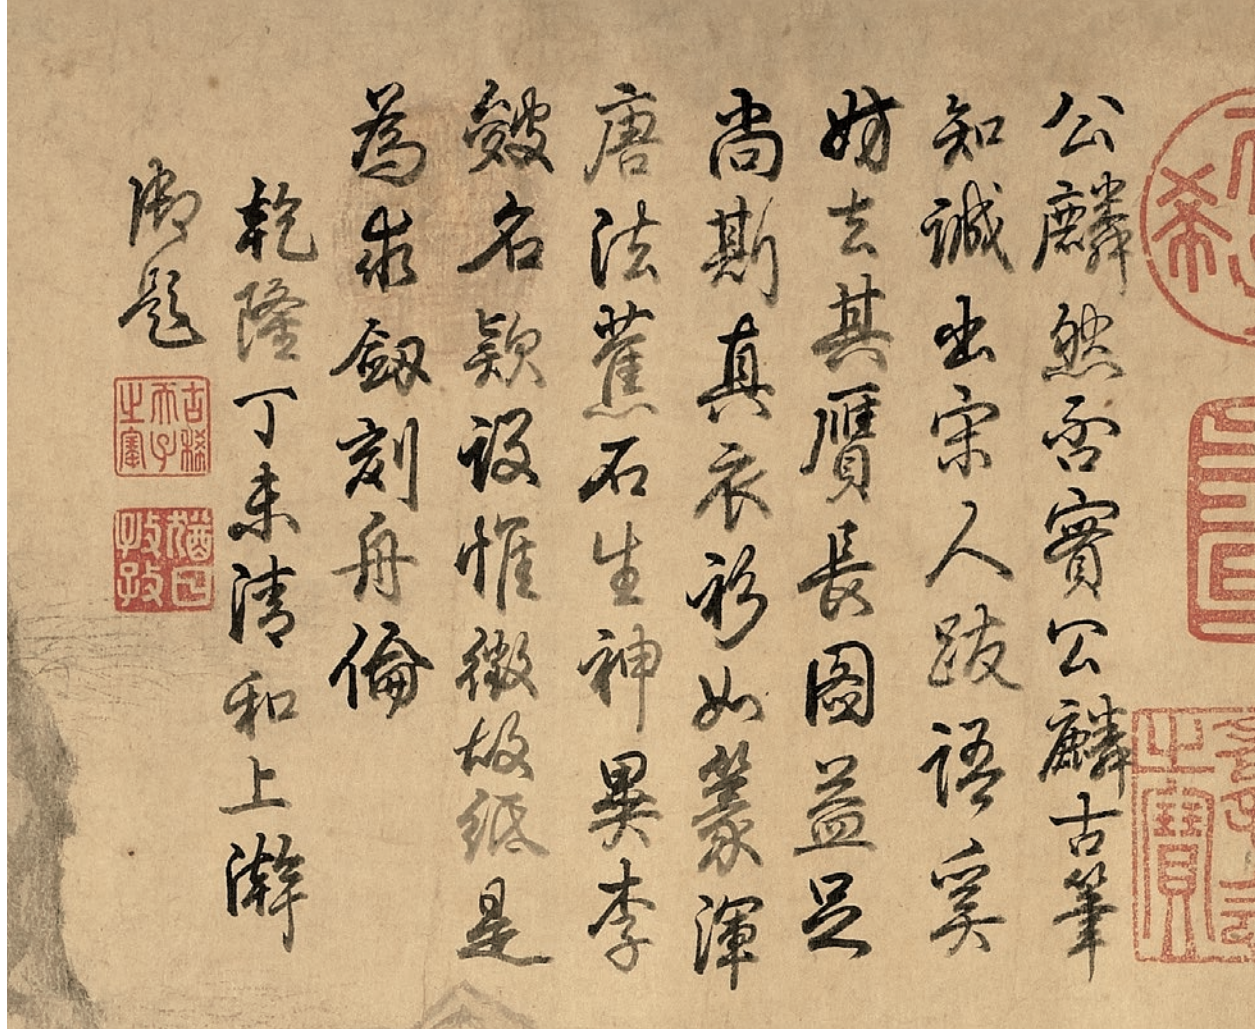 公麟然否實公麟古筆
知誠出宋人跋語奚
妨去其贋長圖益足
尚斯真衣衫如篆渾
唐法蕉石生神異李
皴名款設惟徵故紙是
為求劔刻舟倫
乾隆丁未清和上澣
御題
古稀天子之寶
猶日孜孜
之寶